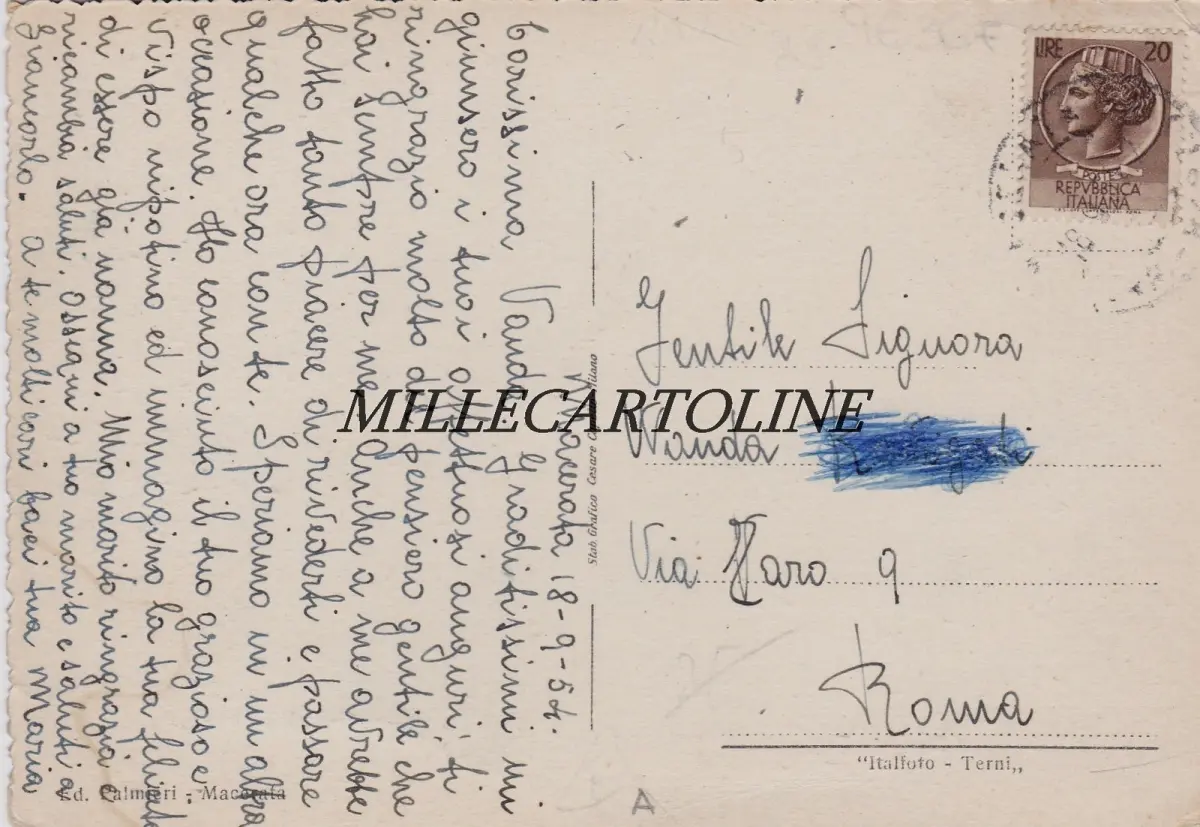 Macerata 18-9-54.
Carissima Vanda, Graditissimi mi
giunsero i tuoi affettuosi auguri. Ti
ringrazio molto del pensiero gentile che
hai sempre per me. Anche a me avrebbe
fatto tanto piacere di rivederti e passare
qualche ora con te. Speriamo in un'altra
occasione. Ho conosciuto il tuo grazioso e
vispo nipotino ed immagino la tua felicità
di essere già nonna. Mio marito ringrazia e
ricambia saluti. Ossequi a tuo marito e saluti a
Giancarlo. A te molti cari baci tua Maria
Ed. Palmieri - Macerata
Stab. Grafico Cesare Milano
MILLECARTOLINE
LIRE 20
POSTE
REPVBBLICA
ITALIANA
Gentile Signora
Wanda
Via Haro 9
Roma
"Italfoto - Terni„
A